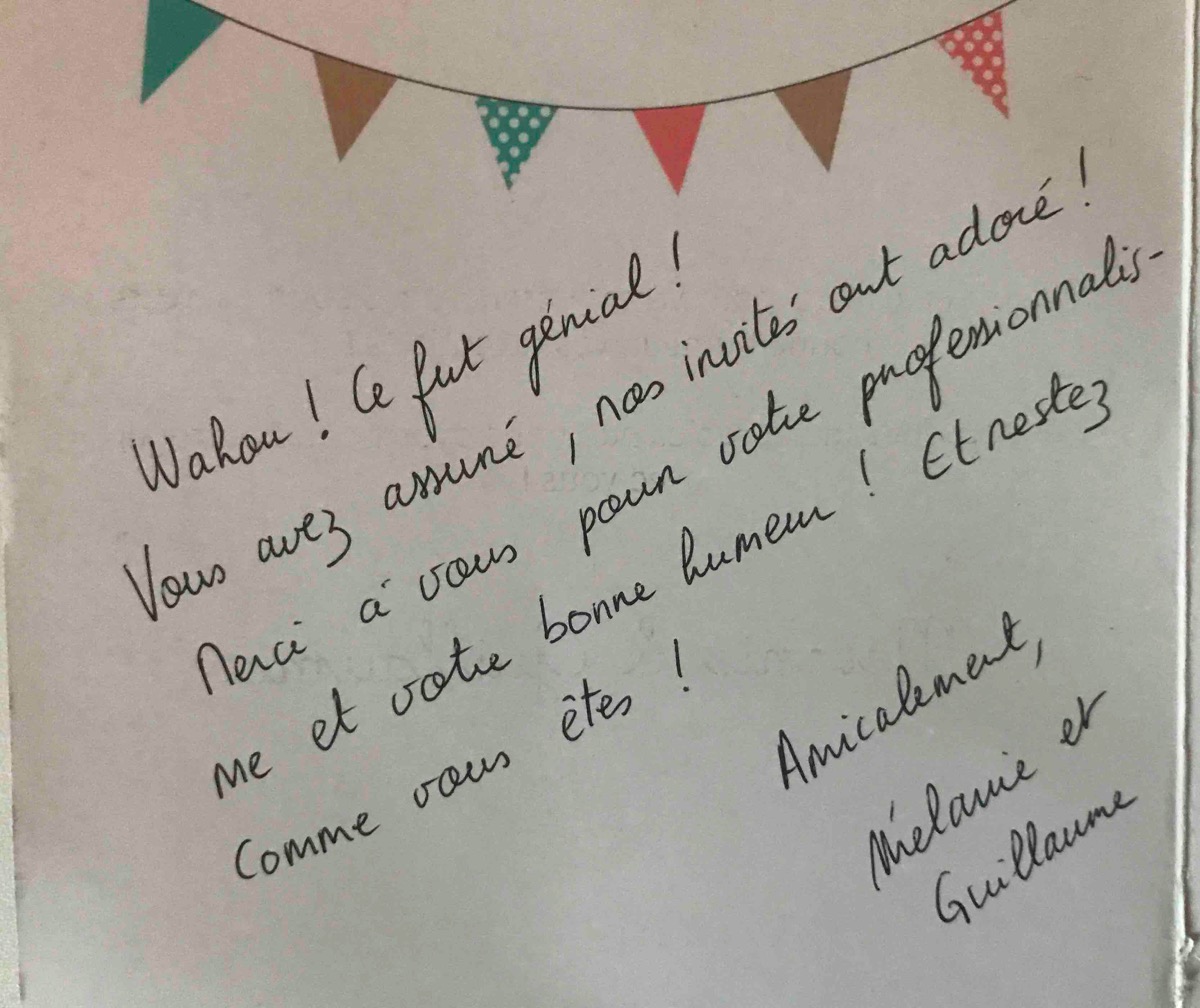 Wahou ! Ce fut génial !
Vous avez assuré, nos invités ont adoré !
Merci à vous pour votre professionnalis-
me et votre bonne humeur ! Et restez
comme vous êtes !
Amicalement,
Mélanie et
Guillaume